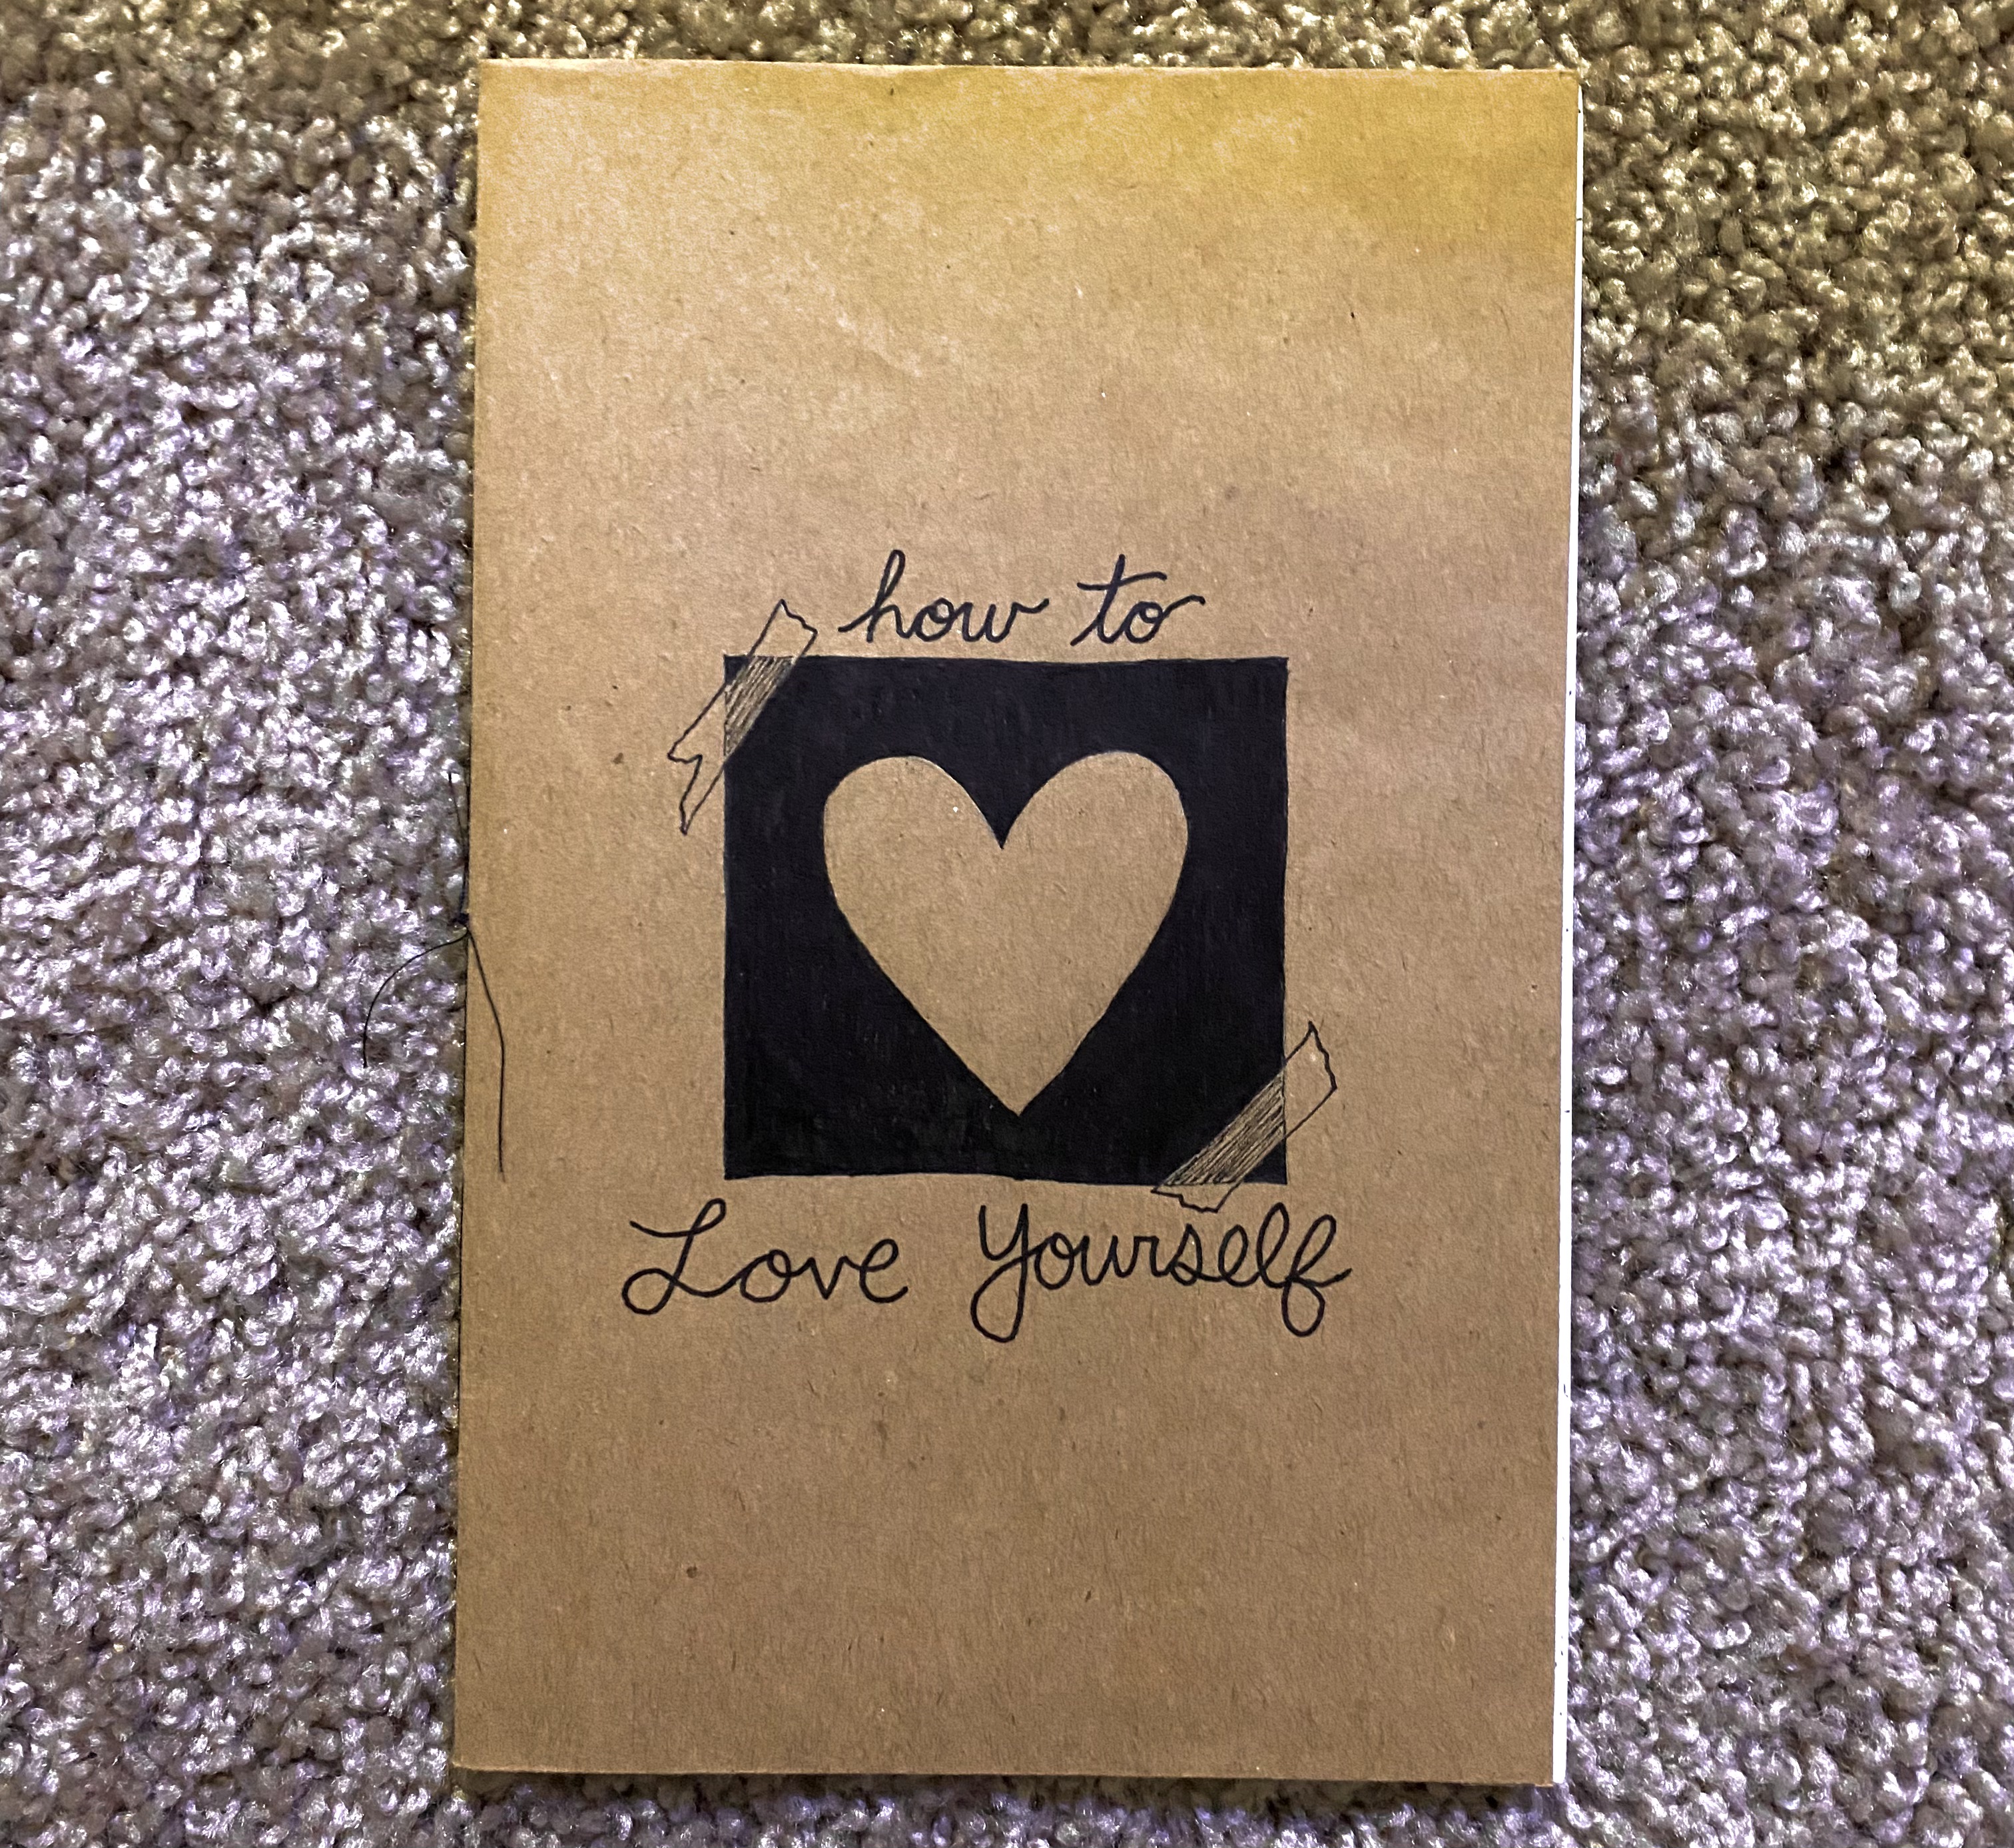 how to
Love Yourself